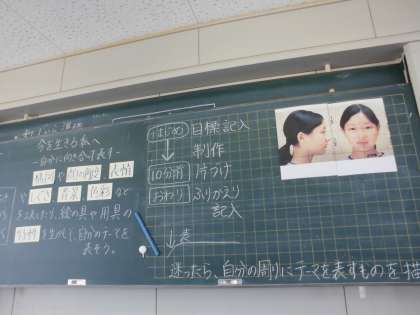 今を生きる私へ
－自分に向き合って表す－
や 顔の角度 表情
や しぐさ 背景 色彩 など
絵の具や用具の
を生かして、自分のテーマを
表そう。
はじめ 目標記入
制作
10分前 片づけ
おわり ふりかえり
記入
迷ったら、自分の周りにテーマを表すものを描